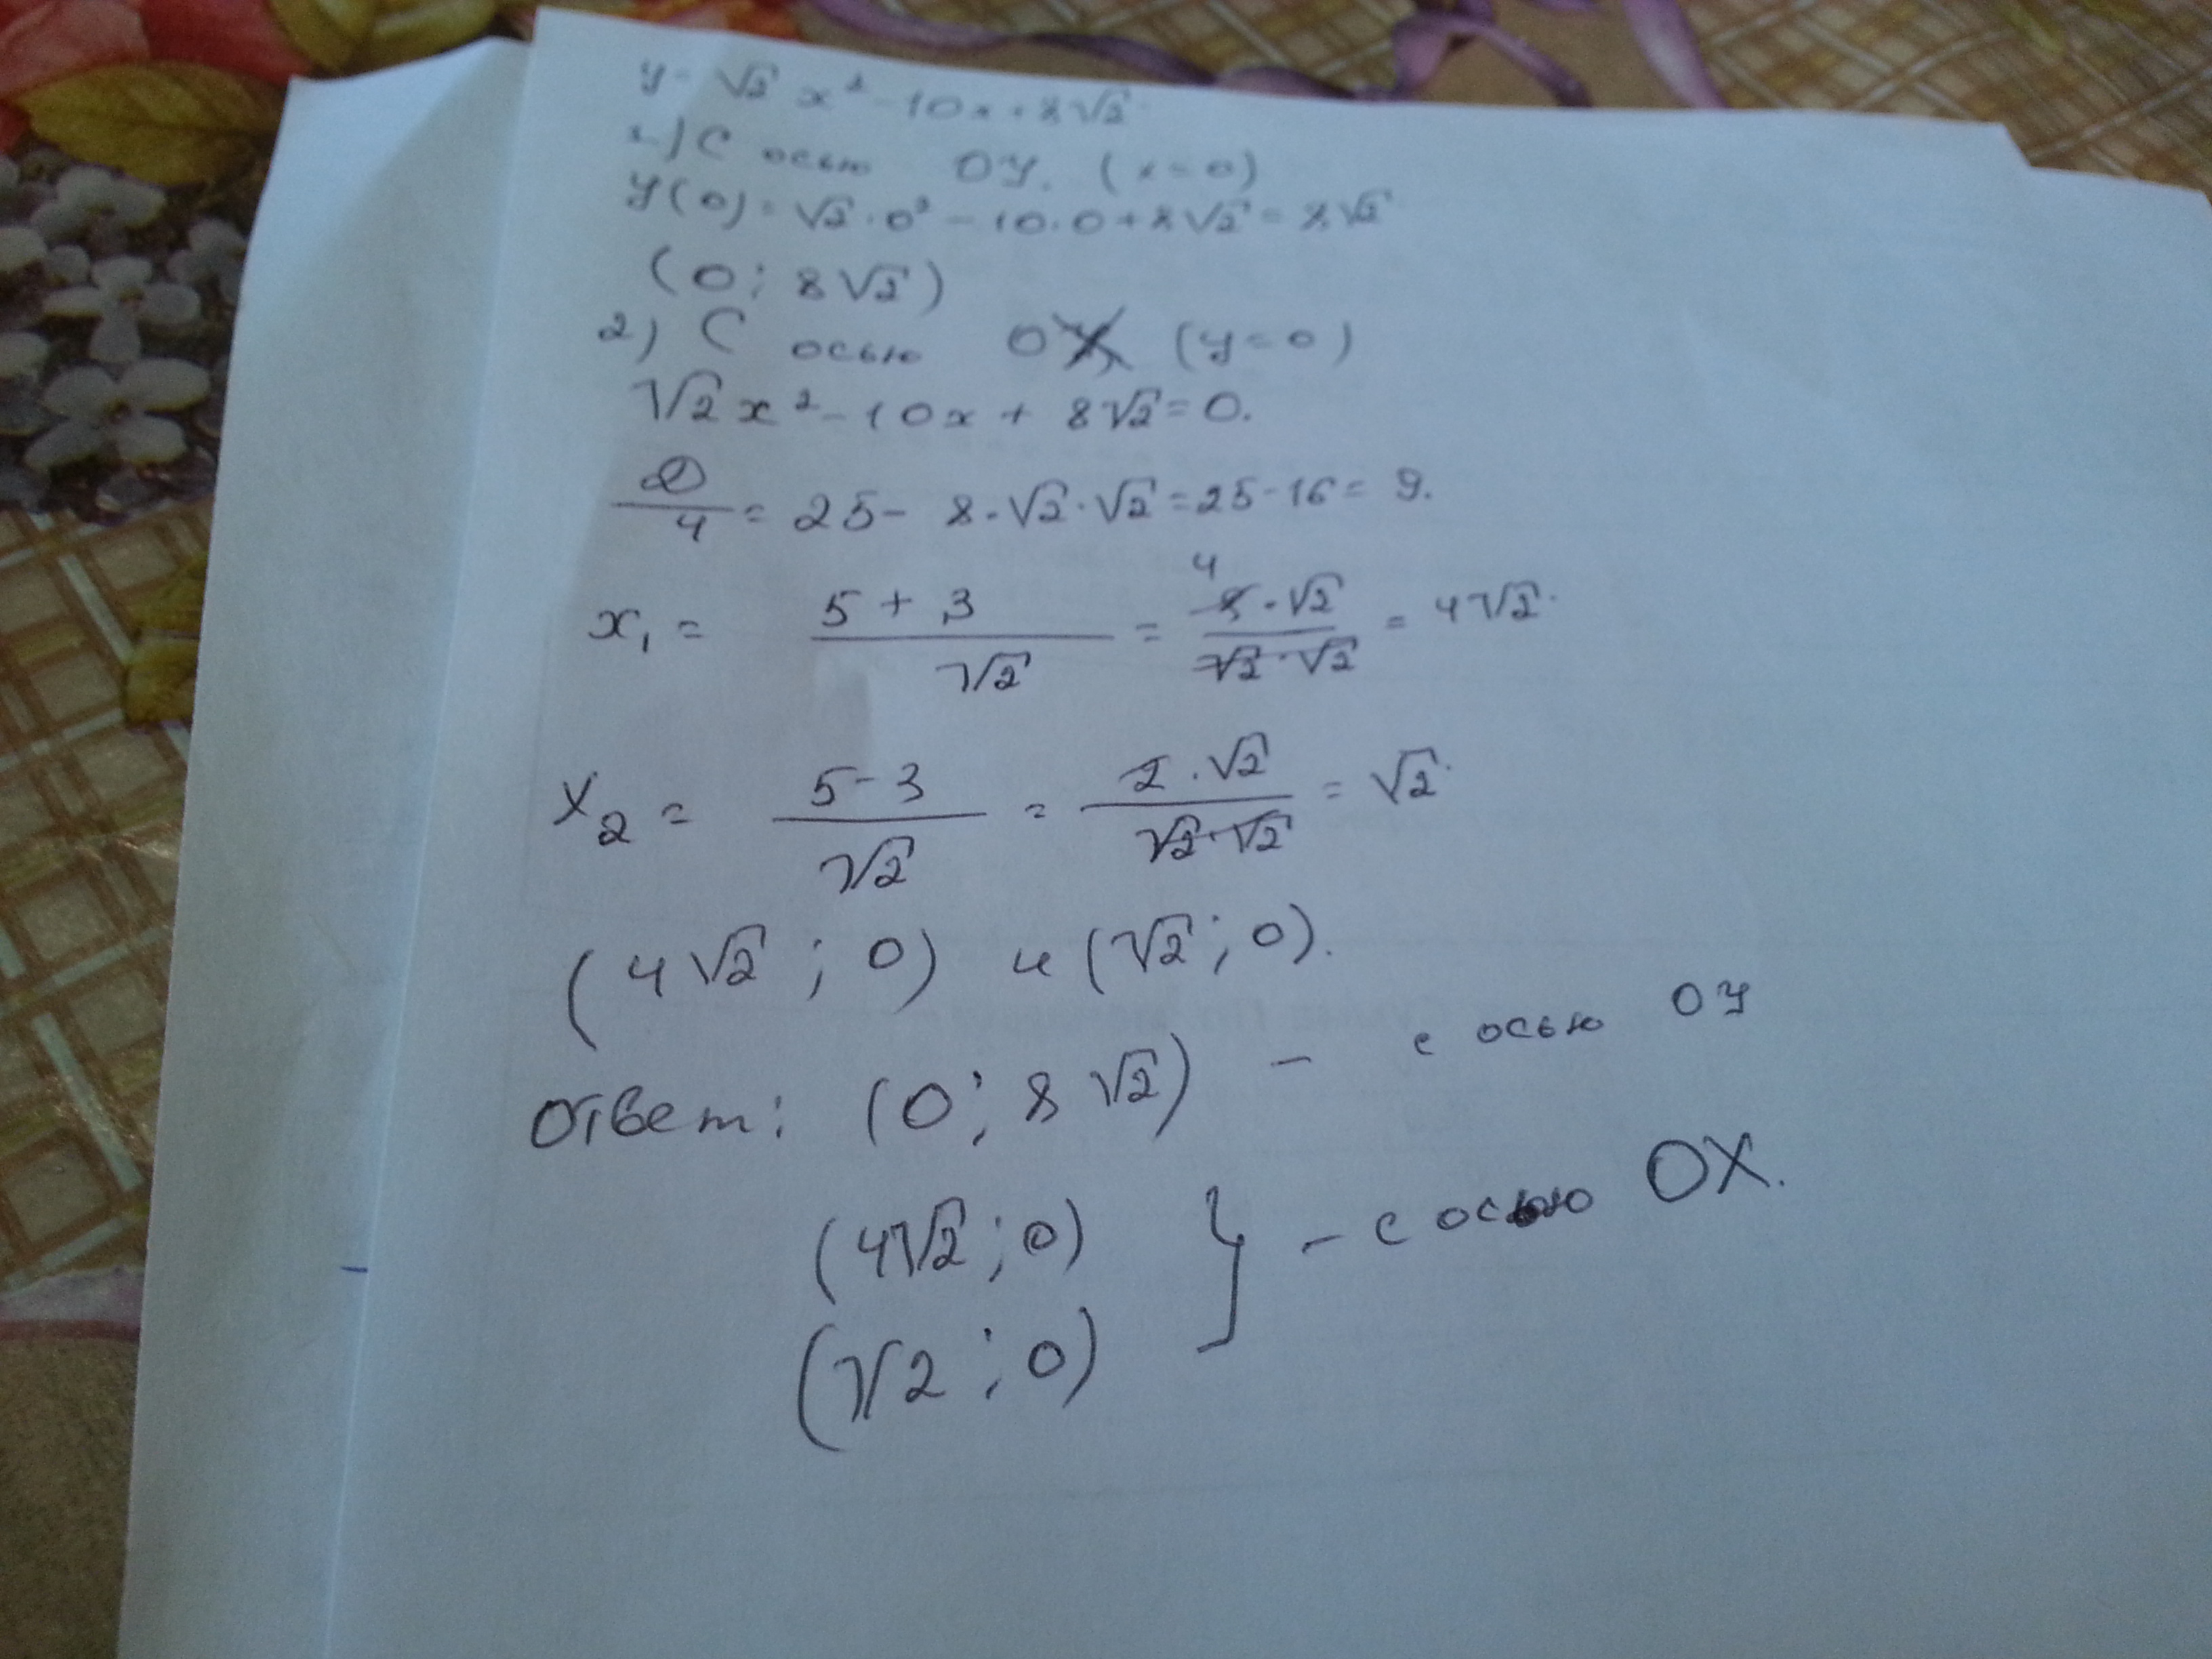 y = √2 x² - 10x + 8√2.
1) С осью OY. (x = 0)
y(0) = √2 · 0² - 10 · 0 + 8√2 = 8√2
(0; 8√2)
2) С осью OX (y = 0)
√2 x² - 10x + 8√2 = 0.
D/4 = 25 - 8 · √2 · √2 = 25 - 16 = 9.
x₁ = (5 + 3)/√2 = (8 · √2)/(√2 · √2) = 4√2.
4
x₂ = (5 - 3)/√2 = (2 · √2)/(√2 · √2) = √2.
(4√2; 0) и (√2; 0).
Ответ: (0; 8√2) - с осью OY
(4√2; 0) } - с осью OX.
(√2; 0)